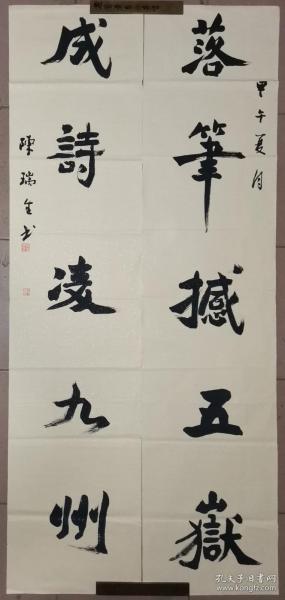 落筆撼五嶽
甲午夏月
成詩凌九州
陳瑞生书
孔夫子旧书网